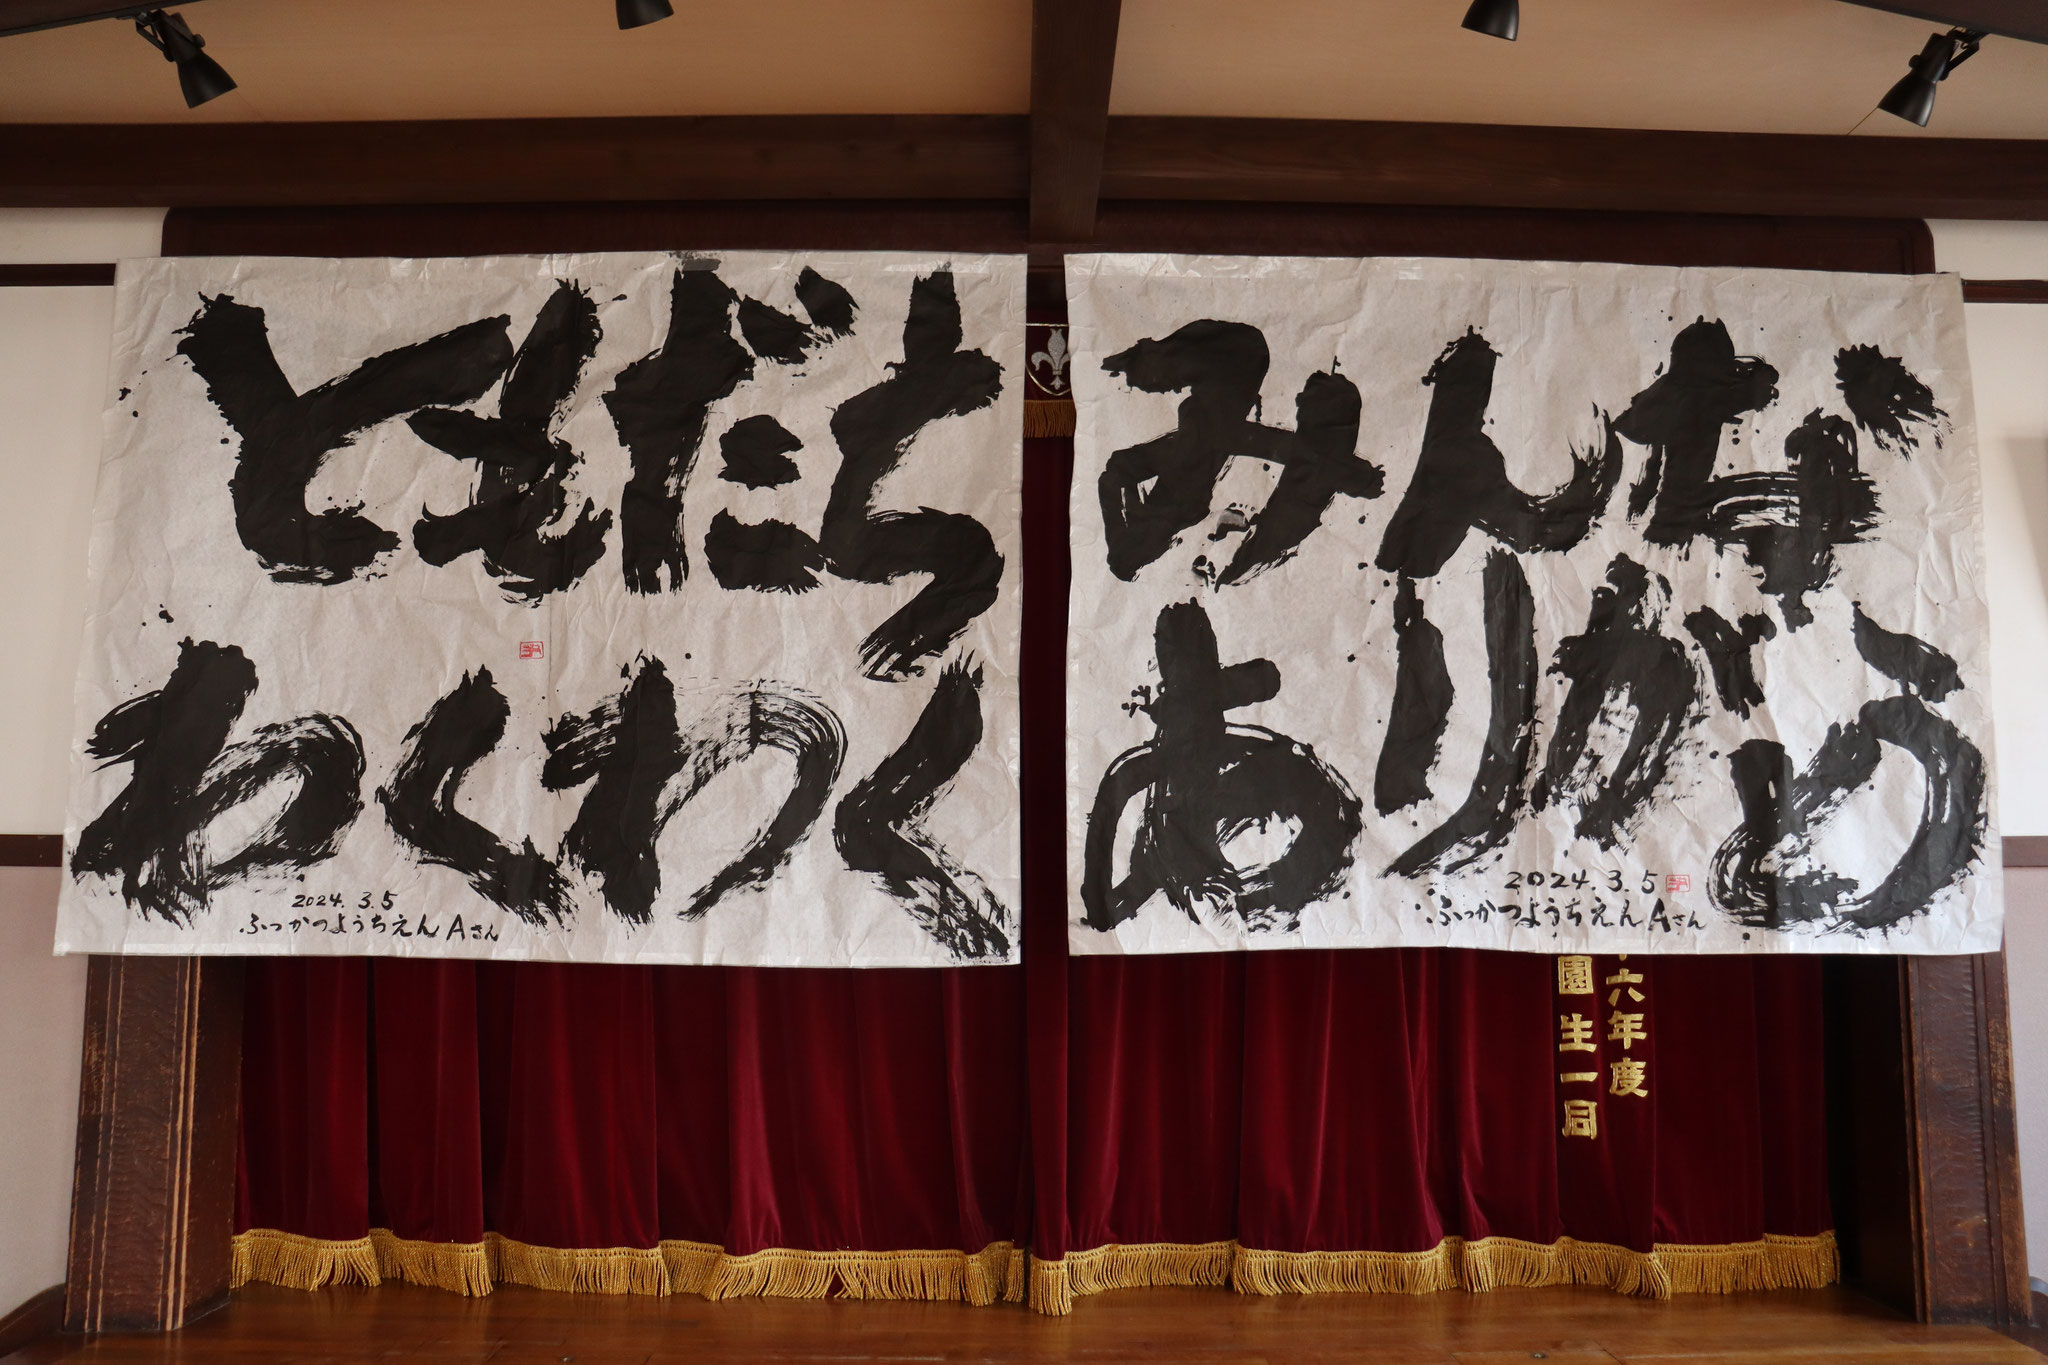 ともだち
わくわく
2024.3.5
ふっかつようちえんAさん
みんな
ありがとう
2024.3.5
ふっかつようちえんAさん
六年度
園生一同